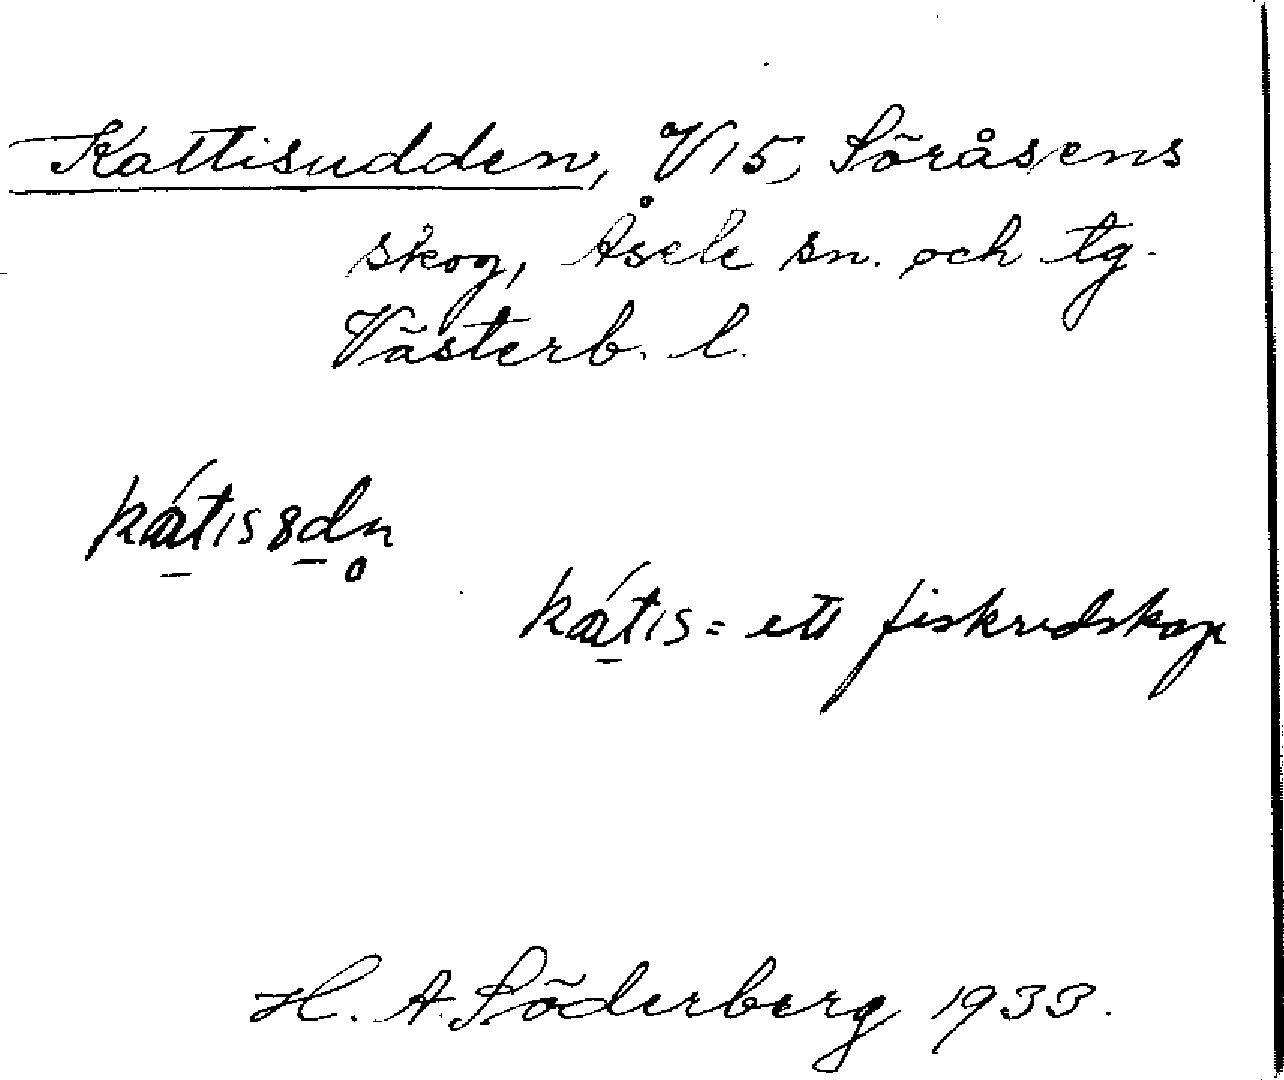 Kattisudden, V 15, Söråsens
skog, Åsele sn. och tg.
Västerb. l.
kátis8dn̥
kátis = ett fiskredskap
H. A. Söderberg 1933.